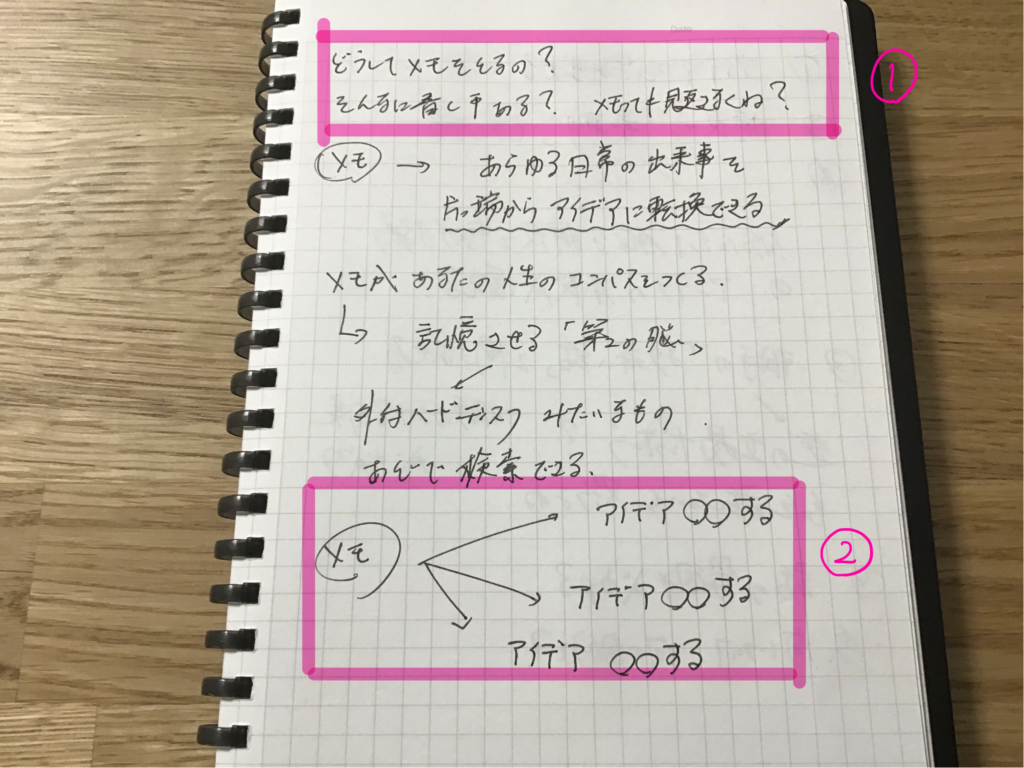 Date
どうしてメモをとるの?
そんなに書く事ある? メモっても見返さなくね?
①
メモ → あらゆる日常の出来事を
片っ端からアイデアに転換できる
メモが あなたの人生のコンパスをつくる.
記憶させる「第2の脳」
外付ハードディスク みたいなもの.
あとで検索できる.
メモ
アイデア〇〇する
②
アイデア〇〇する
アイデア 〇〇する